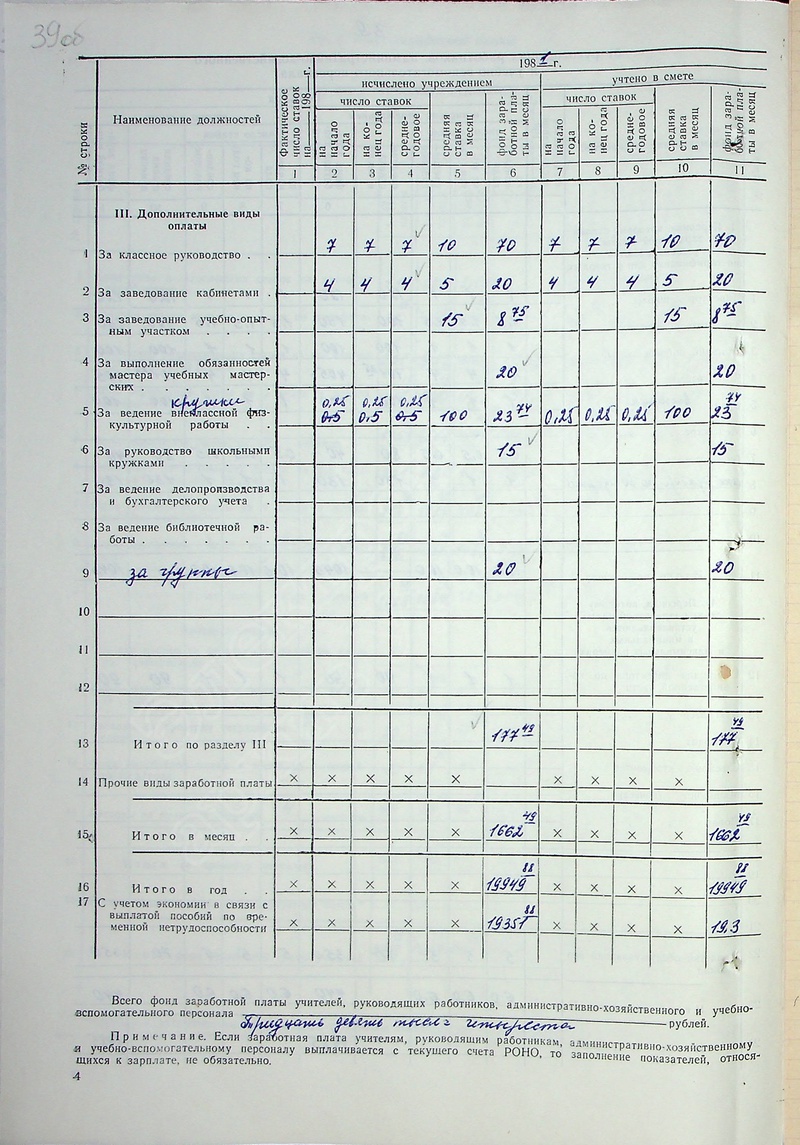 39об
1981 г.
исчислено учреждением
учтено в смете
№ строки
Наименование должностей
Фактическое число ставок на 198 г.
число ставок
число ставок
на начало года
на конец года
средне-годовое
средняя ставка в месяц
фонд заработной платы в месяц
на начало года
на конец года
средне-годовое
средняя ставка в месяц
фонд заработной платы в месяц
1 2 3 4 5 6 7 8 9 10 11
III. Дополнительные виды
оплаты
1 За классное руководство . . 7 7 7 10 70 7 7 7 10 70
2 За заведование кабинетами . 4 4 4 5 20 4 4 4 5 20
3 За заведование учебно-опыт-
ным участком . . . . 15 8 75 15 8 75
4 За выполнение обязанностей
мастера учебных мастер-
ских . . . . . . . 20 20
кружки 0,25 0,25 0,25
5 За ведение внеклассной физ- 0,5 0,5 0,5 100 23 74 0,25 0,25 0,25 100 23 74
культурной работы . .
6 За руководство школьными 15 15
кружками . . . . .
7 За ведение делопроизводства
и бухгалтерского учета .
8 За ведение библиотечной ра-
боты . . . . . . .
9 за 20 20
10
11
12
13 Итого по разделу III 177 49 177 49
14 Прочие виды заработной платы × × × × × × × × ×
15 Итого в месяц . . × × × × × 1662 49 × × × × 1662 49
16 Итого в год . . × × × × × 19949 88 × × × × 19949 88
17 С учетом экономии в связи с
выплатой пособий по вре-
менной нетрудоспособности × × × × × 19351 88 × × × × 19.3
Всего фонд заработной платы учителей, руководящих работников, административно-хозяйственного и учебно-
вспомогательного персонала девять рублей.
Примечание. Если заработная плата учителям, руководящим работникам, административно-хозяйственному
и учебно-вспомогательному персоналу выплачивается с текущего счета РОНО, то заполнение показателей, относя-
щихся к зарплате, не обязательно.
4